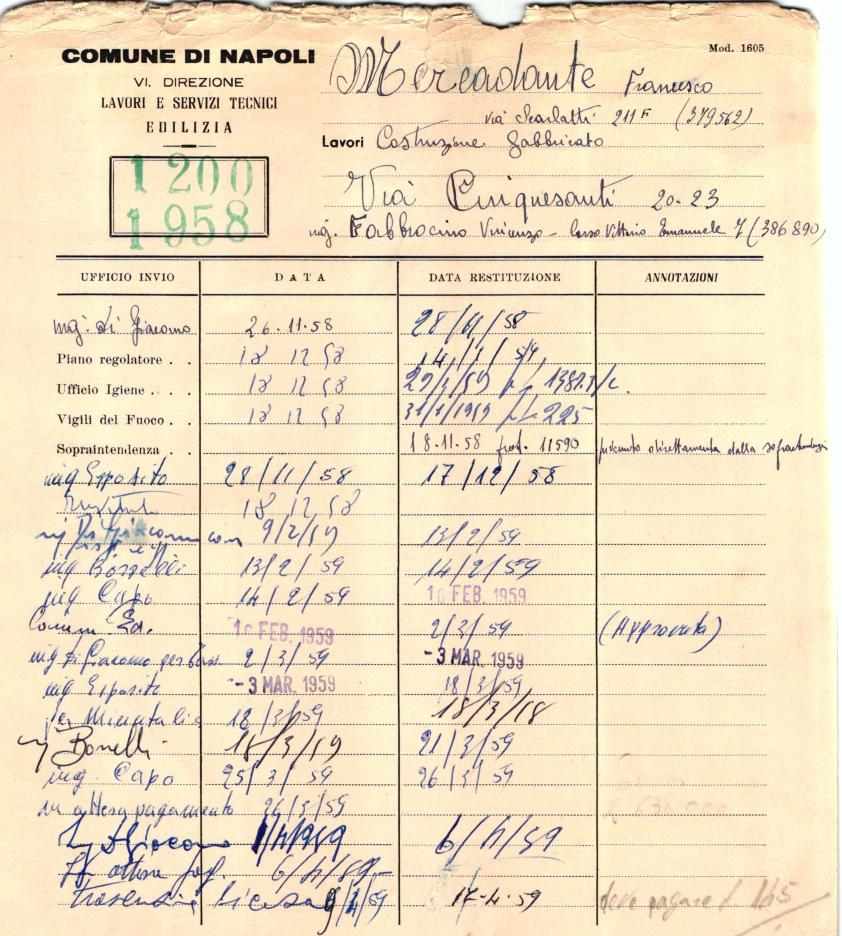 Mod. 1605
COMUNE DI NAPOLI
VI. DIREZIONE
LAVORI E SERVIZI TECNICI
EDILIZIA
1200
1958
Mercadante Francesco
via Scarlatti 211 F (379562)
Lavori Costruzione fabbricato
Via Cinquesanti 20-23
ing. Fabbrocino Vincenzo - Corso Vittorio Emanuele 7 (386890)
UFFICIO INVIO DATA DATA RESTITUZIONE ANNOTAZIONI
ing. di Giacomo 26.11.58 28/11/58
Piano regolatore . . 18 12 58
Ufficio Igiene . . . 18 12 58
Vigili del Fuoco . . 18 12 58 31/1/1959 225
Sopraintendenza . . 18.11.58 prot. 11590 direttamente dalla
ing Esposito 28/11/58 17/12/58
18 12 58
9/2/59 13/2/59
ing 13/2/59 14/2/59
ing Capo 14/2/59 16 FEB. 1959
Comm. Ed. 16 FEB. 1959 2/3/59 (Approvata)
ing di Giacomo per 2/3/59 -3 MAR. 1959
ing Esposito -3 MAR. 1959 18/3/59
18/3/59 18/3/
Bonelli 18/3/59 21/3/59
ing. Capo 25/3/59 26/3/59
in attesa pagamento 26/3/59
1/4/1959 6/4/59
6/4/59
9/4/59 17-4-59 deve pagare £